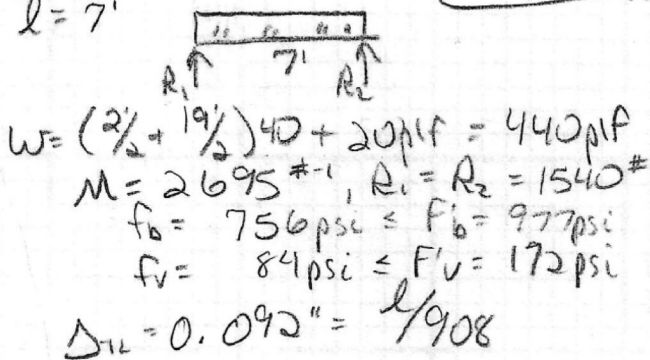 l = 7'
7'
R₁ R₂
w = (2'/2 + 19'/2)40 + 20plf = 440plf
M = 2695 #-', R₁ = R₂ = 1540#
fb = 756psi ≤ F'b = 977psi
fv = 84psi ≤ F'v = 172psi
ΔTL = 0.092" = l/908